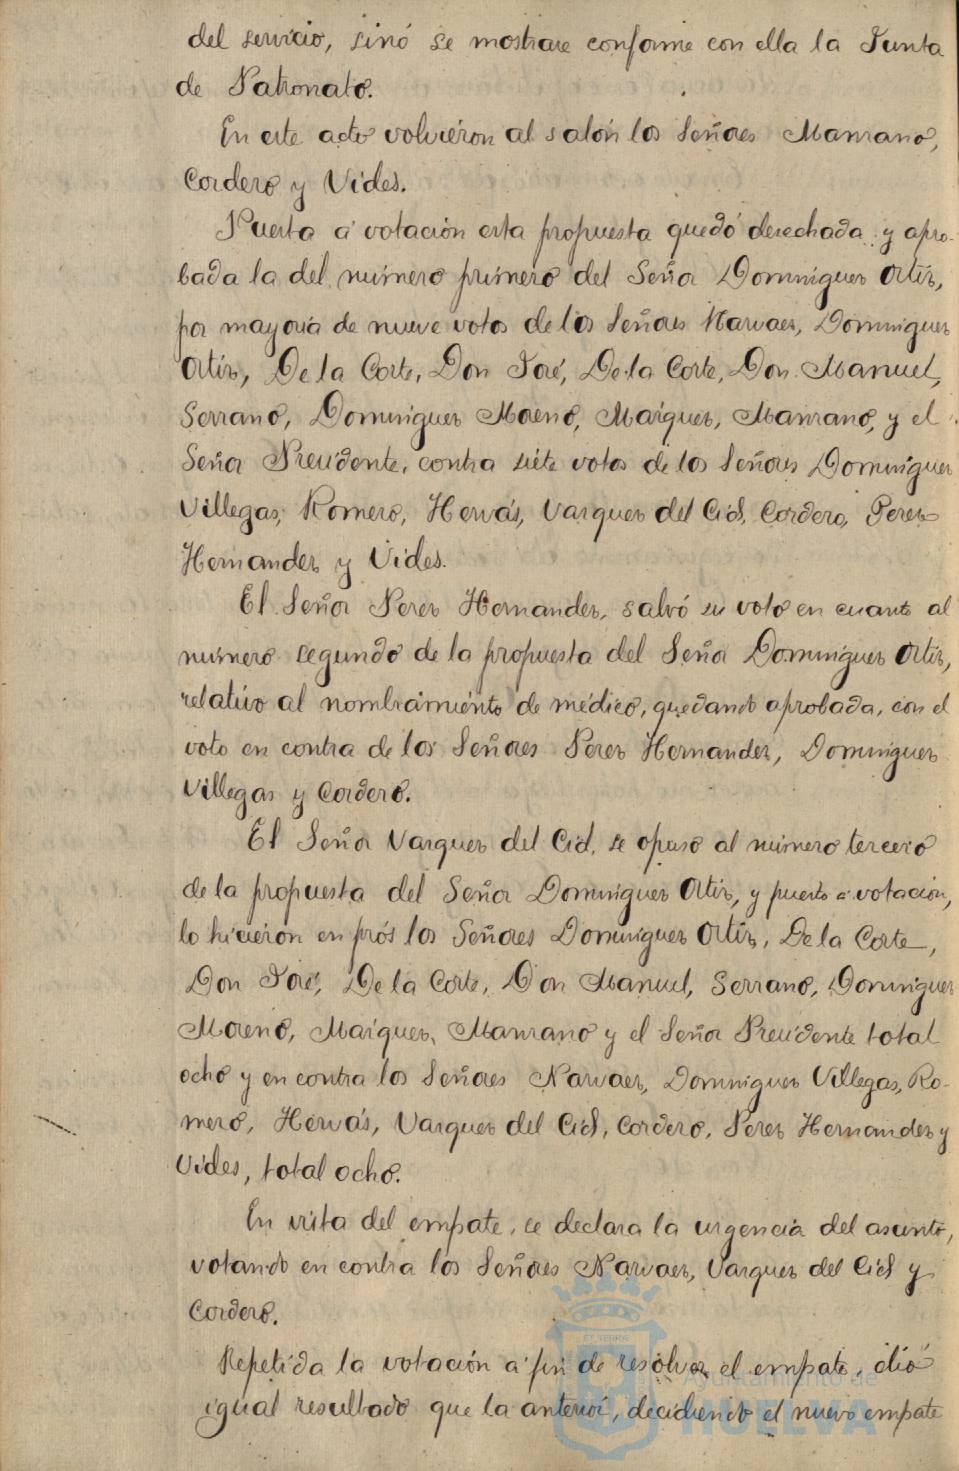 del servicio, sinó se mostrare conforme con ella la Junta
de Patronato.
En este acto volvieron al salón los Señores Manzano,
Cordero y Vides.
Puesta á votación esta propuesta quedó desechada y apro-
bada la del número primero del Señor Dominguez Ortiz,
por mayoria de nueve votos de los Señores Narvaez, Dominguez
Ortiz, De la Corte, Don José, De la Corte, Don Manuel,
Serrano, Dominguez Moreno, Marquez, Manzano, y el
Señor Presidente, contra siete votos de los Señores Dominguez
Villegas, Romero, Hervás, Vazquez del Cid, Cordero, Perez
Hernandez y Vides.
El Señor Perez Hernandez, salvó su voto en cuanto al
número segundo de la propuesta del Señor Dominguez Ortiz,
relativo al nombramiento de médico, quedando aprobada, con el
voto en contra de los Señores Perez Hernandez, Dominguez
Villegas y Cordero.
El Señor Vazquez del Cid, se opuso al número tercero
de la propuesta del Señor Dominguez Ortiz, y puesto á votación,
lo hicieron en prós los Señores Dominguez Ortiz, De la Corte,
Don José, De la Corte, Don Manuel, Serrano, Dominguez
Moreno, Marquez, Manzano y el Señor Presidente total
ocho y en contra los Señores Narvaez, Dominguez Villegas, Ro-
mero, Hervás, Vazquez del Cid, Cordero, Perez Hernandez y
Vides, total ocho.
En vista del empate, se declara la urgencia del asunto,
votando en contra los Señores Narvaez, Vazquez del Cid y
Cordero.
Repetida la votación á fin de resolver el empate, dió
igual resultado que la anterior, decidiendo el nuevo empate
Ayuntamiento de
HUELVA